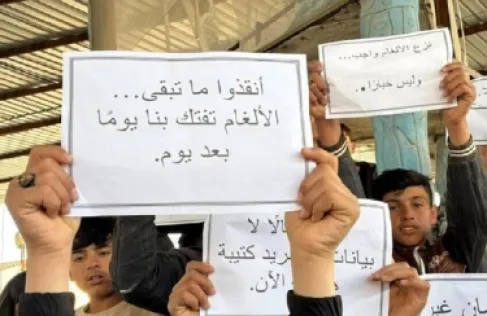 أنقذوا ما تبقى...
الألغام تفتك بنا يومًا
بعد يوم.
نزع الألغام واجب...
وليس خيارًا.
لا
بيانات
نريد كتيبة
الآن.
غير